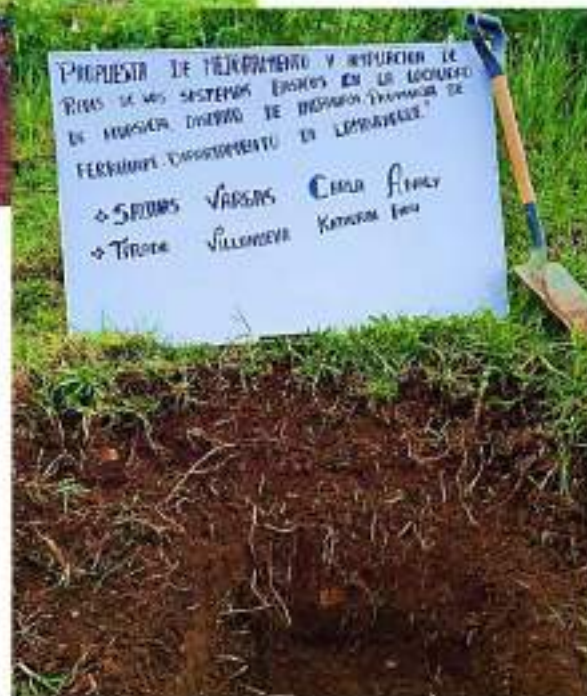 "PROPUESTA DE MEJORAMIENTO Y AMPLIACION DE
REDES DE LOS SISTEMAS BASICOS EN LA LOCALIDAD
DE DISTRITO DE INCAHUASI, PROVINCIA DE
FERREÑAFE, DEPARTAMENTO DE LAMBAYEQUE"
VARGAS CARLA ANALY
VILLANUEVA KATHERIN